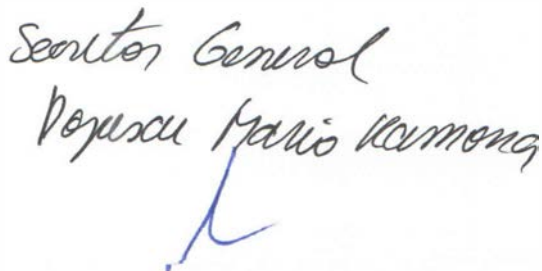 Secretar General
Popescu Maria Ramona